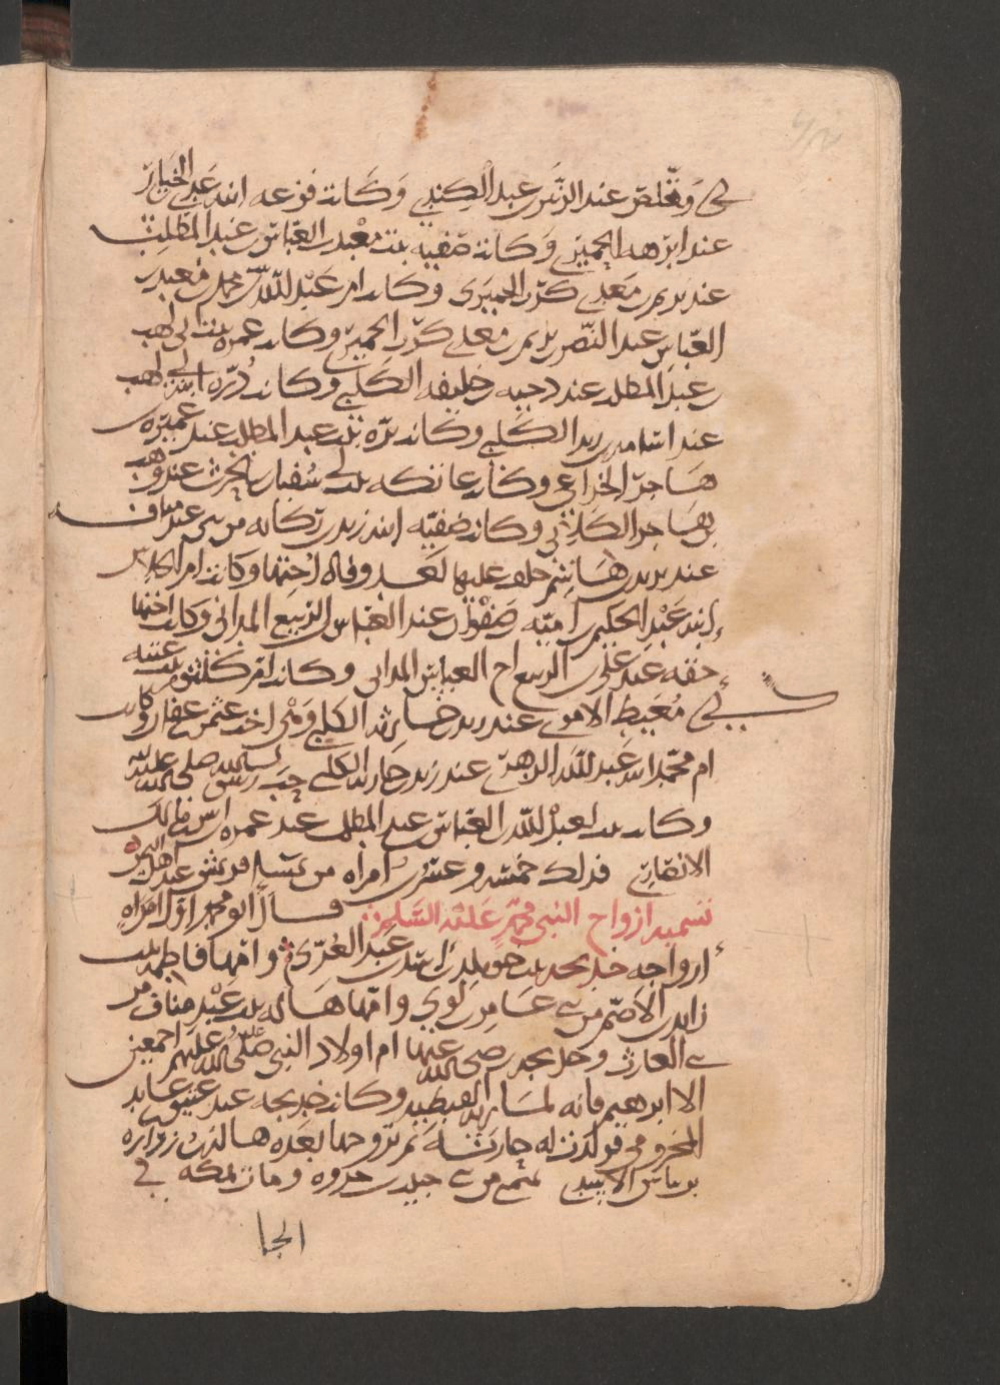 عند ابرهه الحميري وكانت صفيه بنت معبد بن العباس بن عبد المطلب
عند يريم بن معدي كرب الحميري وكانت ام عبد الله بنت محمد بن معبد بن
العباس عند النضر بن يريم بن معدي كرب الحميري وكانت عمره بنت ابي لهب
بن عبد المطلب عند دحيه بن خليفه الكلبي وكانت دره ابنة ابي لهب
عند اسامه بن زيد الكلبي وكانت بره بنت عبد المطلب عند عميره بن
هاجر الخزاعي وكانت عاتكه بنت ابي سفيان بن الحرث عند وهب
عند يزيد بن هاشم خلف عليها بعد وفاة اختها وكانت ام
ابنة عبد الحكيم بن اميه بن صفوان عند العباس بن الربيع المداني وكانت اختها
حفه عند علي بن الربيع اخ العباس المداني وكانت ام كلثوم بنت عقبه
بن ابي معيط الاموي عند زيد بن حارثه الكلبي وهي اخت عثمن بن عفان وكانت
ام محمد ابنة عبد الله الزهري عند زيد بن حارثه الكلبي حب رسول الله صلى الله عليه
وكانت بنت لعبد الله بن العباس بن عبد المطلب عند عمره بن انس بن مالك
الانصاري فذلك خمسه وعشرين امراه من نسا قريش عند اهل اليمن
تسميه ازواج النبي محمد عليه السلم قال ابو محمد اول امراه
ازواجه خديجه بنت خويلد بن اسد بن عبد العزى وامها فاطمه بنت
زايده بن الاصم من بني عامر بن لوي وامها هاله بنت عبد مناف من
بني الحارث وخديجه رضي الله عنها ام اولاد النبي صلى الله عليه وعليهم اجمعين
الا ابرهيم فانه لماريه القبطيه وكانت خديجه عند عتيق بن عابد
المخزومي فولدت له جاريه ثم تزوجها بعده هاله بن زراره
بن نباش الاسيدي تميم من بني حبيب بن جروه ومات بمكه في
الجا